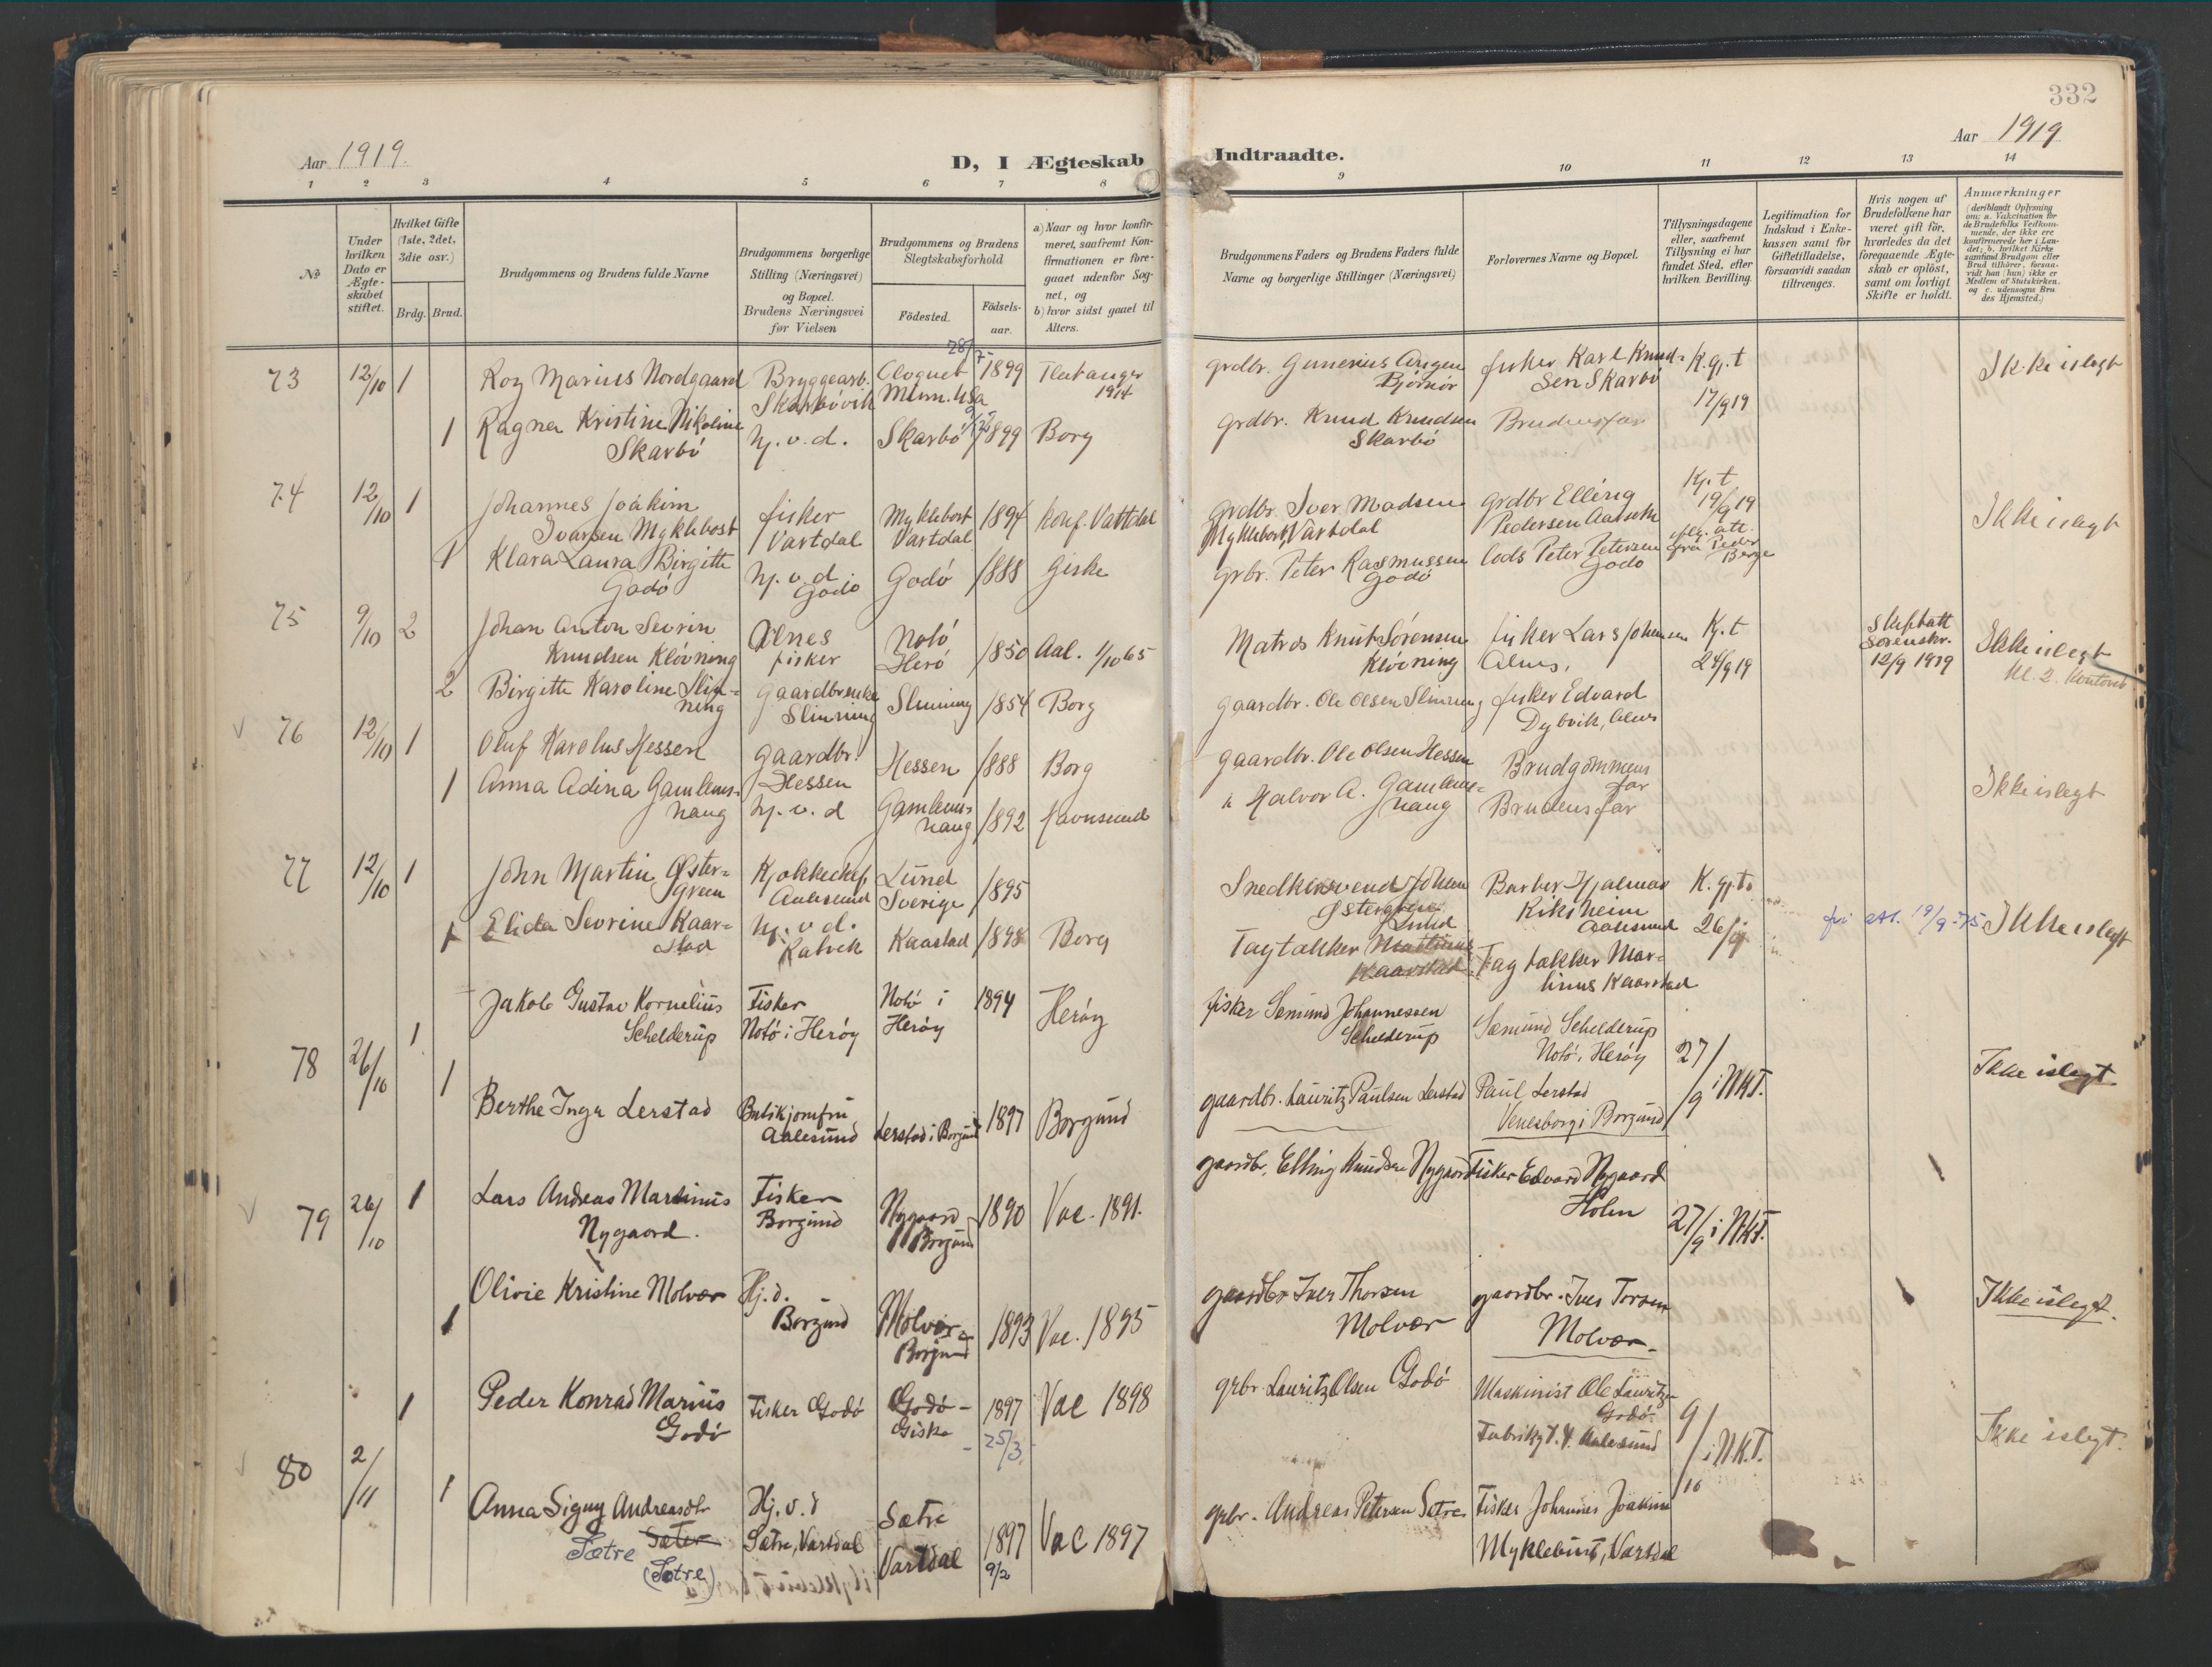 332
Aar 1919.
Aar 1919
D, I Ægteskab Indtraadte.
1 2 3 4 5 6 7 8 9 10 11 12 13 14
№
Under hvilken Dato er Ægteskabet stiftet.
Hvilket Gifte (1ste, 2det, 3die osv.)
Brdg. Brud.
Brudgommens og Brudens fulde Navne
Brudgommens borgerlige Stilling (Næringsvei) og Bopæl. Brudens Næringsvei før Vielsen
Brudgommens og Brudens Slegtskabsforhold
Fødested.
Fødselsaar.
a) Naar og hvor konfirmeret, saafremt Konfirmationen er foregaaet udenfor Sognet, og
b) hvor sidst gaaet til Alters.
Brudgommens Faders og Brudens Faders fulde Navne og borgerlige Stillinger (Næringsvei)
Forlovernes Navne og Bopæl.
Tillysningsdagene eller, saafremt Tillysning ei har fundet Sted, efter hvilken Bevilling.
Legitimation for Indskud i Enkekassen samt for Giftetilladelse, forsaavidt saadan tiltrænges.
Hvis nogen af Brudefolkene har været gift før, hvorledes da det foregaaende Ægteskab er opløst, samt om lovligt Skifte er holdt.
Anmærkninger (deriblandt Oplysning om: a. Vakcination for de Brudefolks Vedkommende, der ikke ere konfirmerede her i Landet; b. hvilket Kirkesamfund Brudgom eller Brud tilhører, forsaavidt han (hun) ikke er Medlem af Statskirken, og c. udensogns Brudes Hjemsted.)
73 12/10 1 Roy Marius Nordgaard Bryggearb. Skarbövik Cloquet Minn. Usa 28/7 1899 Flatanger 1914 grdbr. Gunerius Angen Björnör fisker Karl Knudsen Skarbö K. gj. t 17/9 19 Ikke islegt
1 Ragna Kristine Nikoline Skarbö hj. v. d. Skarbö 1899 Borg grdbr. Knud Knudsen Skarbö Brudens far
74 12/10 1 Johannes Joakim Ivarsen Myklebost fisker Vartdal Myklebost Vartdal 1894 konf. Vartdal grdbr. Iver Madsen Myklebost, Vartdal grdbr Elling Pedersen Kj. t 19/9 19 Ikke islegt
1 Klara Laura Birgitte Godö hj. v. d. Godö Godö 1888 Giske grbr. Peter Rasmussen Godö Peter Petersen Godö att. fra
75 9/10 2 Johan Anton Sevrin Knudsen Klövning Alnes fisker Notö Herö 1850 Aal. 1/10 65 Matros Knut Sörensen Klövning fisker Lars Johansen Alnes, Kj. t 24/9 19 skifteatt Sorenskr. 12/9 1919 Ikke islegt
2 Birgitte Karoline Slinning gaardbrenke Slinning Slinning 1854 Borg gaardbr. Ole Olsen Slinning fisker Edvard Dybvik, Alnes
76 12/10 1 Oluf Karolus Hessen gaardbr. Hessen Hessen 1888 Borg gaardbr. Ole Olsen Hessen Brudgommens far Ikke islegt
1 Anna Adina Gamlemshaug hj. v. d Gamlemshaug 1892 Havnsund Halvor A. Gamlemshaug Brudens far
77 12/10 1 John Martin Østergreen Kjokkechef, Aalesund Lund Sverige 1895 Snedkersvend Johan Østergreen Lund Barber Hjalmar Riksheim Aalesund K. gj. t. 26/9 Ikke islegt
1 Elida Sevrine Kaarstad hj. v. d. Ratvik Kaastad 1898 Borg Tagtækker Martinus Kaarstad Tagtækker Martinus Kaarstad
78 26/10 1 Jakob Gustav Kornelius Schelderup Fisker Notö i Heröy Notö i Heröy 1894 Heröy fisker Semund Johannessen Schelderup Sæmund Schelderup Notö i Heröy 27/9 i NKT. Ikke islegt
1 Berthe Inga Lerstad Butikjomfru Aalesund Lerstad i Borgund 1897 Borgund gaardbr. Lauritz Paulsen Lerstad Paul Lerstad i Borgund
79 26/10 1 Lars Andreas Martinus Nygaard. Fisker Borgund Nygaard Borgund 1890 Vac. 1891. gaardbr. Elling Knudsen Nygaard Fisker Edvard Nygaard Holen 27/9 i NKT.
1 Olivie Kristine Molvær Hj. d. Borgund Molvær Borgund 1893 Vac. 1895 gaardbr Iver Thorsen Molvær gaardbr. Iver Torsen Molvær Ikke islegt.
80 2/11 1 Peder Konrad Marius Godö Fisker Godö Godö - Giske 1897 25/3 Vac 1898 grbr. Lauritz Olsen Godö Maskinist Ole Lauritzen Godö. Aalesund 9/10 i NKT. Ikke islegt.
1 Anna Signy Andreasdtr Sætre Sæter (Sætre) Hj. v. d Sætre, Vartdal Sætre Vartdal 1897 9/2 Vac 1897 grbr. Andreas Petersen Sætre Fisker Johannes Joakim Myklebust, Vartdal